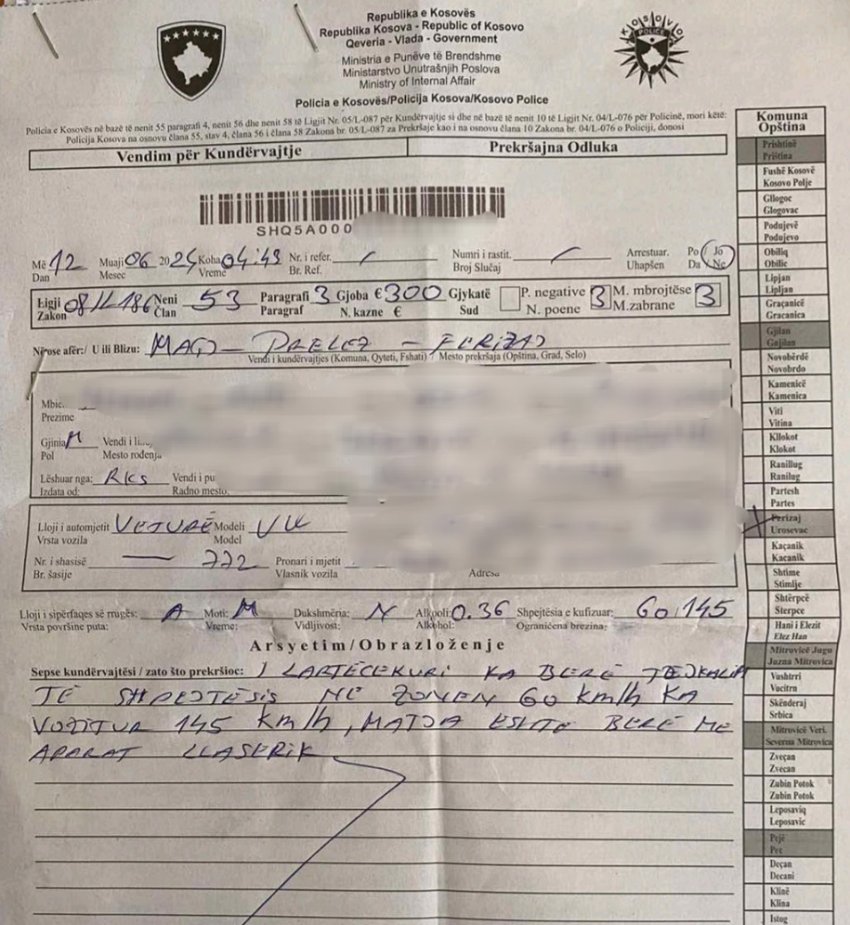 Republika e Kosovës
Republika Kosova - Republic of Kosovo
Qeveria - Vlada - Government
Ministria e Punëve të Brendshme
Ministarstvo Unutrašnjih Poslova
Ministry of Internal Affair
Policia e Kosovës/Policija Kosova/Kosovo Police
KOSOVO
POLICE
Policia e Kosovës në bazë të nenit 55 paragrafi 4, nenit 56 dhe nenit 58 të Ligjit Nr. 05/L-087 për Kundërvajtje si dhe në bazë të nenit 10 të Ligjit Nr. 04/L-076 për Policinë, mori këtë:
Policija Kosova na osnovu člana 55, stav 4, člana 56 i člana 58 Zakona br. 05/L-087 za Prekršaje kao i na osnovu člana 10 Zakona br. 04/L-076 o Policiji, donosi
Vendim për Kundërvajtje Prekršajna Odluka
SHQ5A000
Më 12 Muaji 06 2024 Koha 04:43 Nr. i refer. Numri i rastit. Arrestuar. Po Jo
Dan Mesec Vreme Br. Ref. Broj Slučaj Uhapšen Da Ne
Ligji 08/L-186 Neni 53 Paragrafi 3 Gjoba € 300 Gjykatë P. negative 3 M. mbrojtëse 3
Zakon Član Paragraf N. kazne € Sud N. poene M.zabrane
Njrose afër:/ U ili Blizu: MAGJ - PRELEZ - FERIZAJ
Vendi i kundërvajtjes (Komuna, Qyteti, Fshati) / Mesto prekršaja (Opština, Grad, Selo)
Mbie.
Prezime
Gjinia M Vendi i
Pol Mesto rođenja
Lëshuar nga: RKS Vendi i
Izdata od: Radno mesto.
Lloji i automjetit VETURË Modeli VW
Vrsta vozila Model
Nr. i shasisë 772 Pronari i mjetit
Br. šasije Vlasnik vozila Adresa
Lloji i sipërfaqes së rrugës: A Moti: M Dukshmëria: N Alkooli: 0.36 Shpejtësia e kufizuar: 60/145
Vrsta površine puta: Vreme: Vidljivost: Alkohol: Ograničena brezina:
Arsyetim/Obrazloženje
Sepse kundërvajtësi / zato što prekršioc: I LARTËCEKURI KA BERË TEJKALIM
TË SHPEJTËSIS NË ZONEN 60 km/h KA
VOZITUR 145 km/h, MATJA ESHTË BERË ME
APARAT LLASERIK
Komuna
Opština
Prishtinë
Priština
Fushë Kosovë
Kosovo Polje
Gllogoc
Glogovac
Podujevë
Podujevo
Obiliq
Obilic
Lipjan
Lipljan
Graçanicë
Gracanica
Gjilan
Gnjilan
Novobërdë
Novobrdo
Kamenicë
Kamenica
Viti
Vitina
Kllokot
Klokot
Ranillug
Ranilug
Partesh
Partes
Ferizaj
Urosevac
Kaçanik
Kacanik
Shtime
Stimlje
Shtërpcë
Sterpce
Hani i Elezit
Elez Han
Mitrovicë Jugu
Juzna Mitrovica
Vushtrri
Vucitrn
Skënderaj
Srbica
Mitrovicë Veri.
Severna Mitrovica
Zveçan
Zvecan
Zubin Potok
Zubin Potok
Leposaviq
Leposavic
Pejë
Pec
Deçan
Decani
Klinë
Klina
Istog